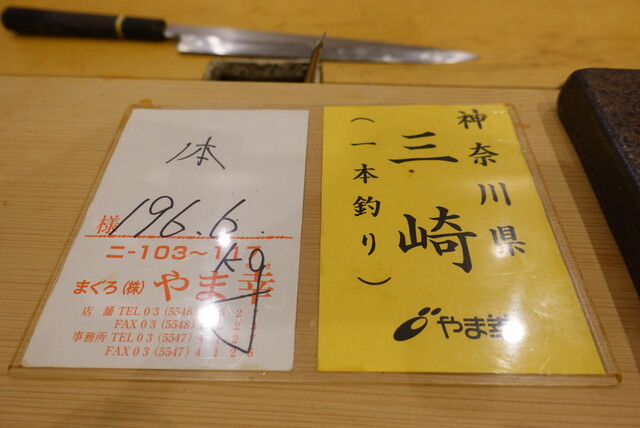 本
様 196.6
ニ-103~117
kg
まぐろ(株) やま幸
店 舗 TEL 03 (5548)
FAX 03 (5548)
事務所 TEL 03 (5547)
FAX 03 (5547) 4 1 2 6
神奈川県
三崎
(一本釣り)
やま幸